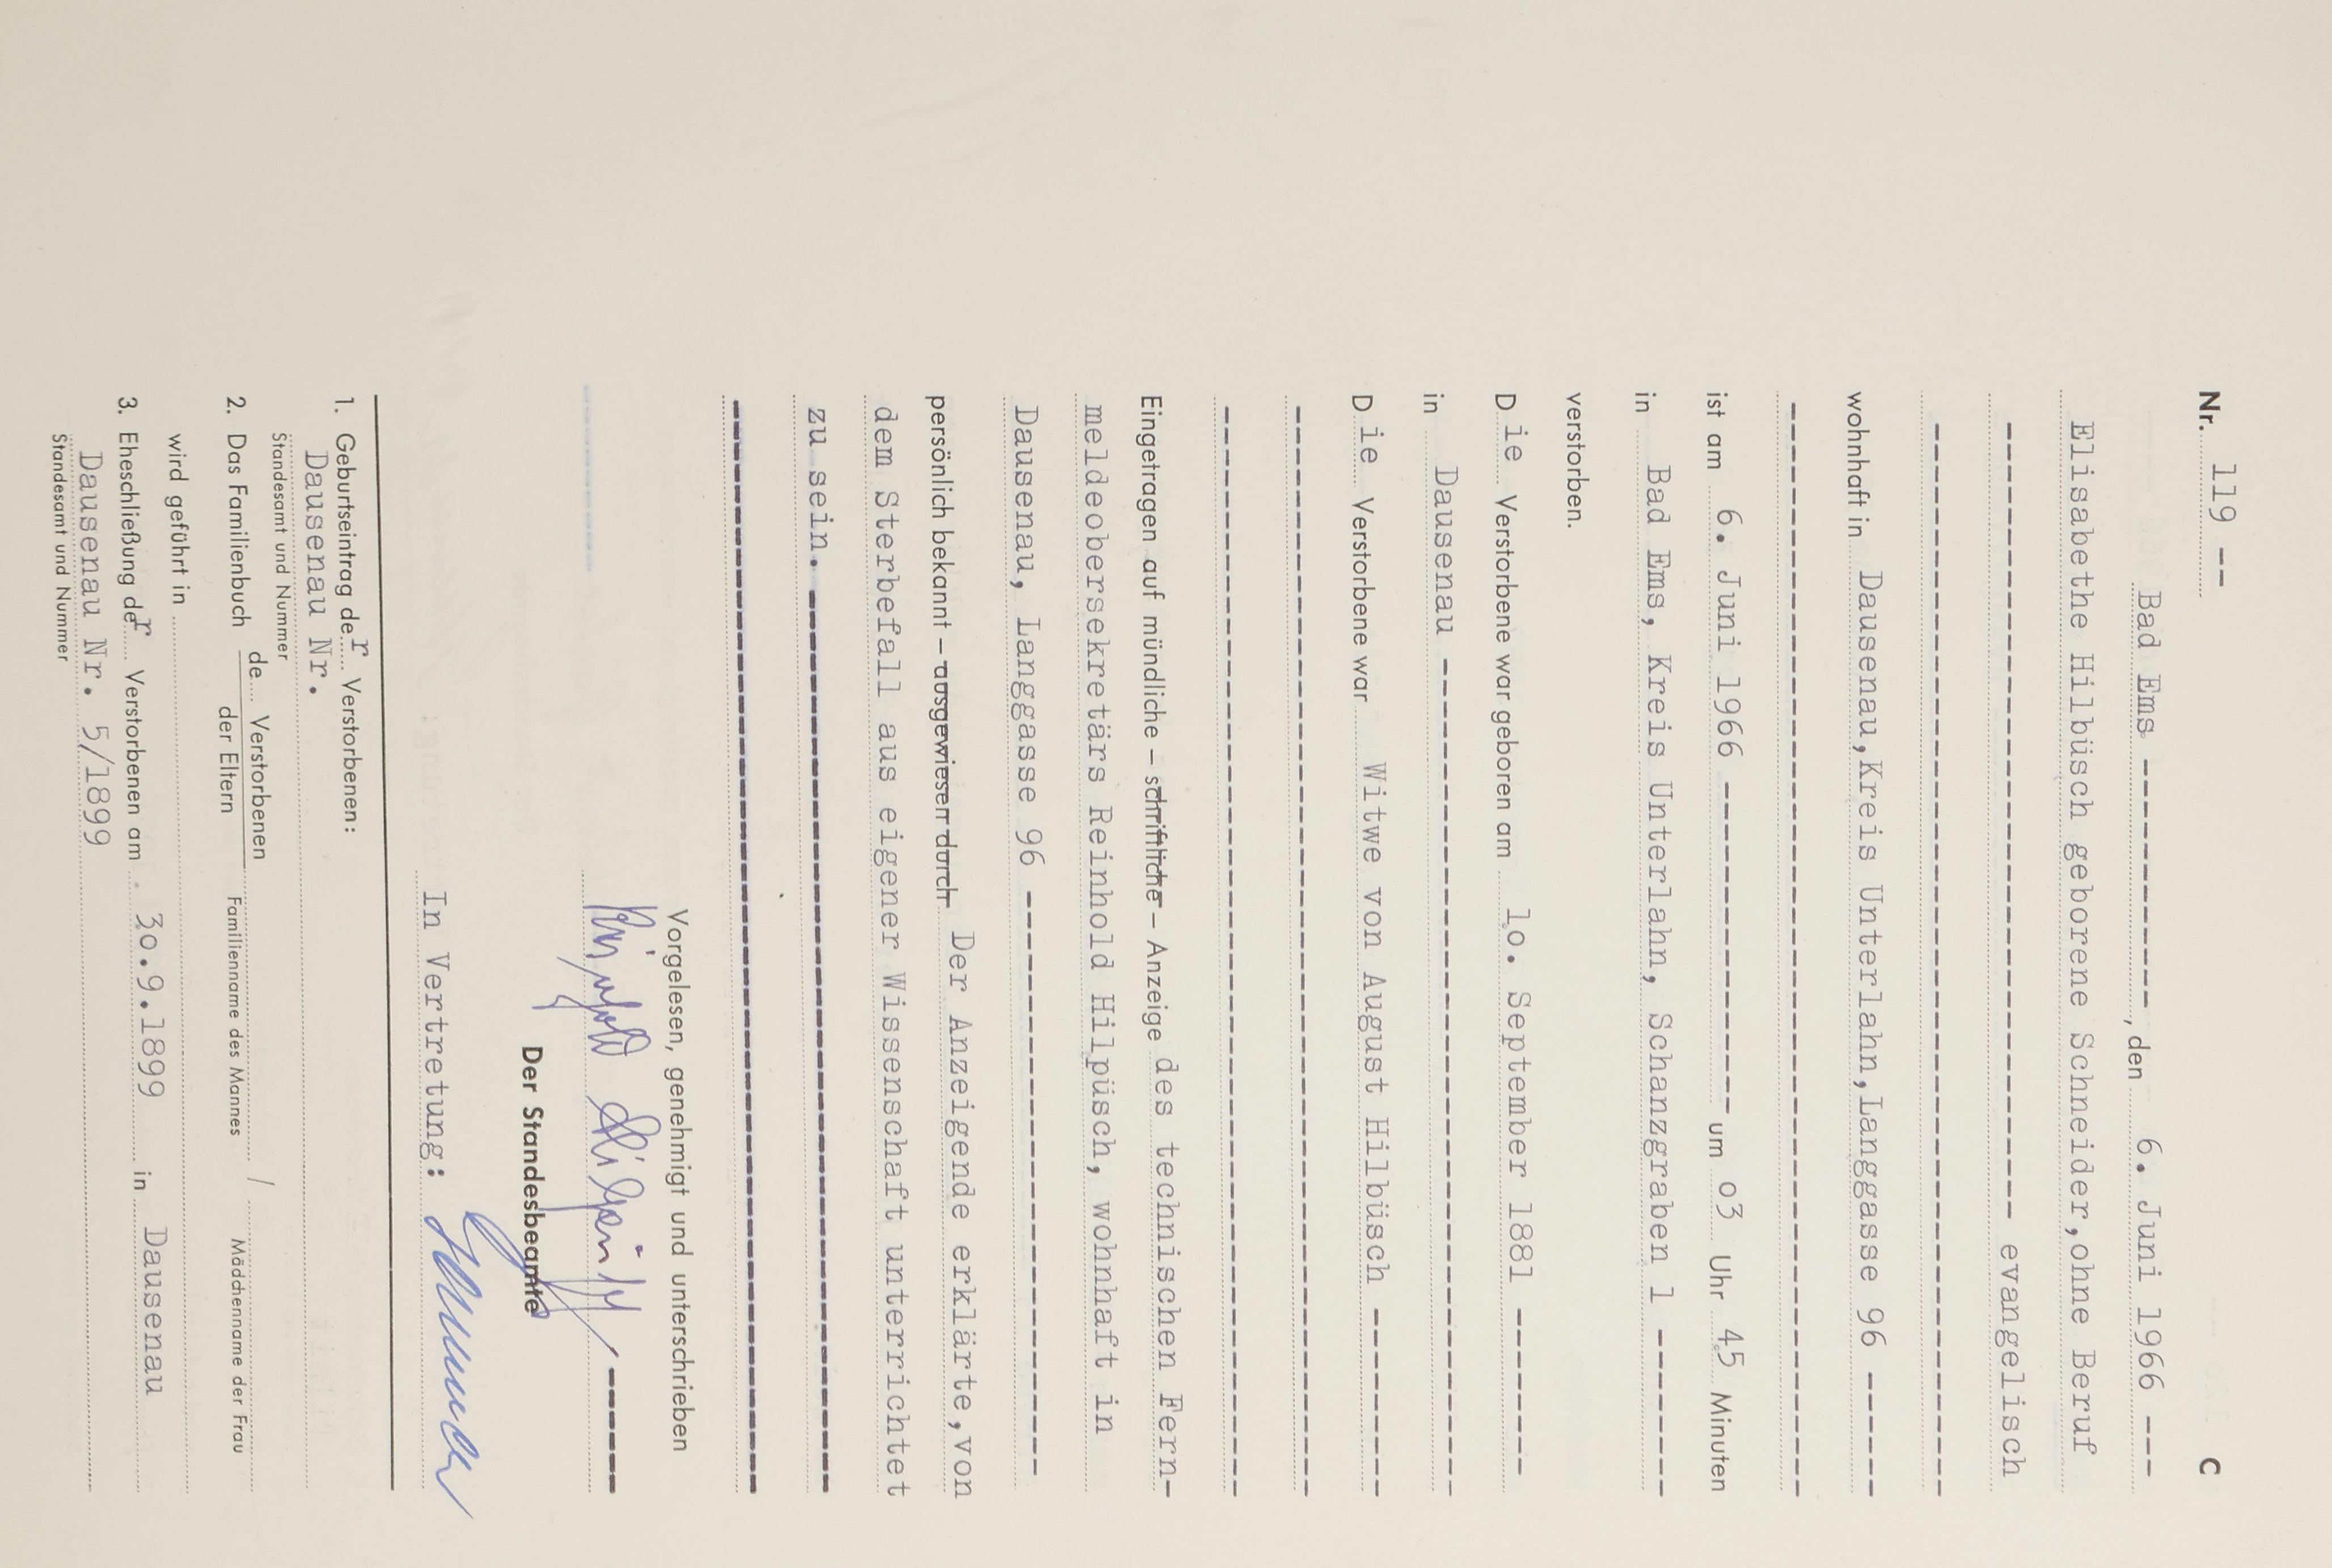 Nr. 119 -- C
Bad Ems ------------, den 6. Juni 1966 ---
Elisabethe Hilbüsch geborene Schneider,ohne Beruf
---------------------------------------- evangelisch
-----------------------------------------------------
wohnhaft in Dausenau,Kreis Unterlahn,Langgasse 96 ------
-----------------------------------------------------
ist am 6. Juni 1966 ---------------- um o3 Uhr 45 Minuten
in Bad Ems, Kreis Unterlahn, Schanzgraben 1 --------
verstorben.
Die Verstorbene war geboren am lo. September 1881 --------
in Dausenau ----------------------------------------
Die Verstorbene war Witwe von August Hilbüsch ---------
-----------------------------------------------------
-----------------------------------------------------
Eingetragen auf mündliche – schriftliche – Anzeige des technischen Fern-
meldeobersekretärs Reinhold Hilpüsch, wohnhaft in
Dausenau, Langgasse 96 -----------------------------
persönlich bekannt – ausgewiesen durch Der Anzeigende erklärte,von
dem Sterbefall aus eigener Wissenschaft unterrichtet
zu sein. --------------------------------------------
-----------------------------------------------------
Vorgelesen, genehmigt und unterschrieben
Reinhold Hilpüsch ------
Der Standesbeamte
In Vertretung:
1. Geburtseintrag der Verstorbenen:
Dausenau Nr.
Standesamt und Nummer
2. Das Familienbuch de... Verstorbenen / der Eltern
Familienname des Mannes / Mädchenname der Frau
wird geführt in
3. Eheschließung der Verstorbenen am 3o.9.1899 in Dausenau
Dausenau Nr. 5/1899
Standesamt und Nummer